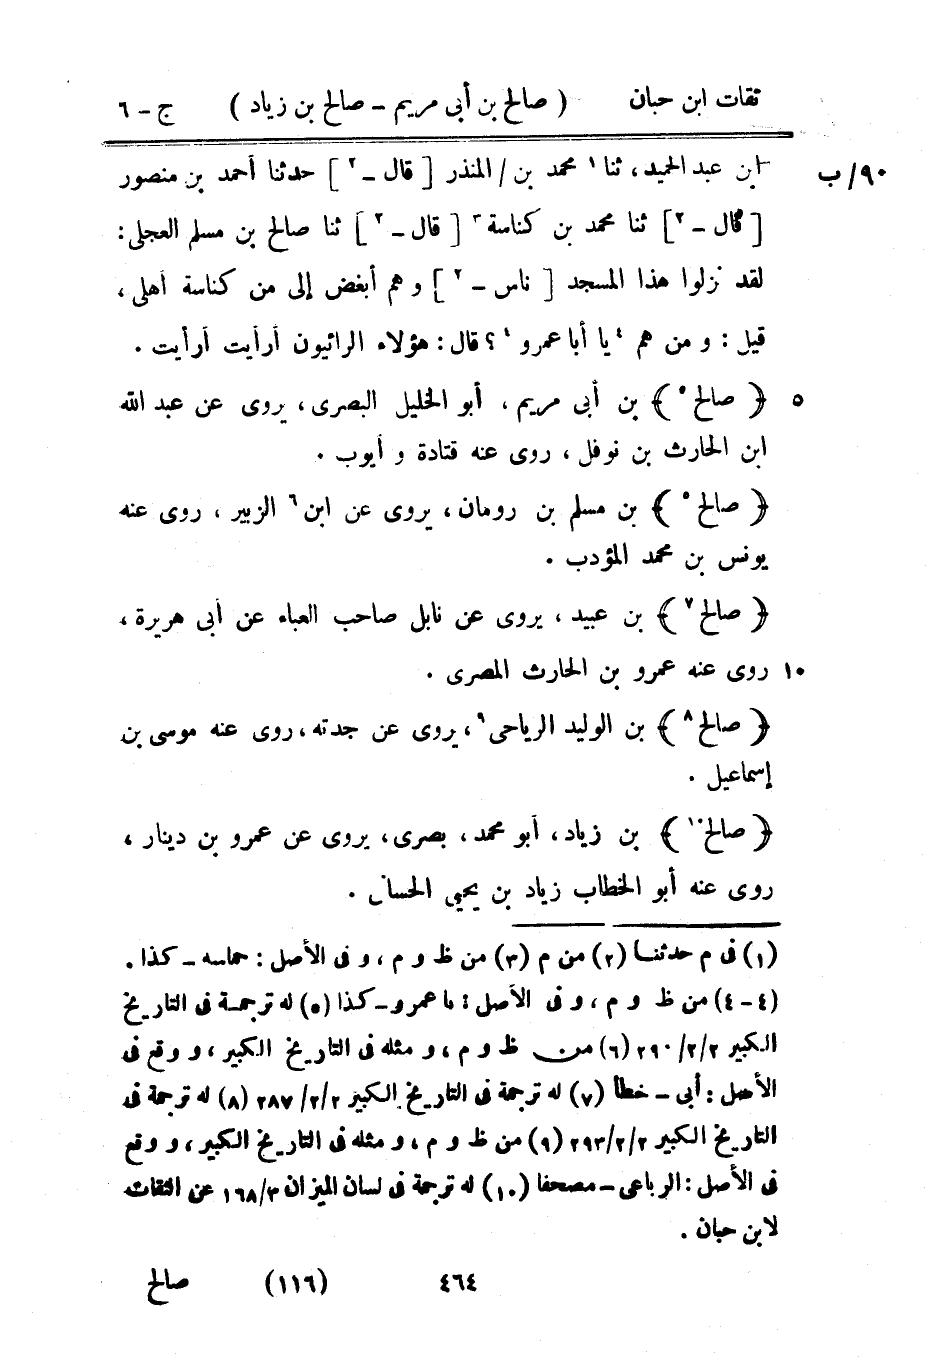 ثقات ابن حبان ( صالح بن أبى مريم - صالح بن زياد ) ج - ٦
ابن عبد الحميد، ثنا ١ محمد بن / المنذر [ قال - ٢ ] حدثنا أحمد بن منصور ٩٠/ب
[ قال - ٢ ] ثنا محمد بن كناسة ٣ [ قال - ٢ ] ثنا صالح بن مسلم العجلى :
لقد نزلوا هذا المسجد [ ناس - ٢ ] و هم أبغض إلى من كناسة أهلى ،
قيل : و من هم ٤ يا أبا عمرو ٤ ؟ قال : هؤلاء الرائيون أرأيت أرأيت .
﴿ صالح ٥ ﴾ بن أبى مريم ، أبو الخليل البصرى ، يروى عن عبد الله ٥
ابن الحارث بن نوفل ، روى عنه قتادة و أيوب .
﴿ صالح ٥ ﴾ بن مسلم بن رومان ، يروى عن ابن ٦ الزبير ، روى عنه
يونس بن محمد المؤدب .
﴿ صالح ٧ ﴾ بن عبيد ، يروى عن نابل صاحب العباء عن أبى هريرة ،
روى عنه عمرو بن الحارث المصرى . ١٠
﴿ صالح ٨ ﴾ بن الوليد الرياحى ٩ ، يروى عن جدته ، روى عنه موسى بن
إسماعيل .
﴿ صالح ١٠ ﴾ بن زياد ، أبو محمد ، بصرى ، يروى عن عمرو بن دينار ،
روى عنه أبو الخطاب زياد بن يحيى الحسانى .
(١) فى م حدثنا (٢) من م (٣) من ظ و م ، و فى الأصل : حماسه - كذا .
(٤ - ٤) من ظ و م ، و فى الأصل : با عمرو - كذا (٥) له ترجمة فى التاريخ
الكبير ٢/٢/ ٢٩٠ (٦) من ظ و م ، و مثله فى التاريخ الكبير ، و وقع فى
الأصل : أبى - خطأ (٧) له ترجمة فى التاريخ الكبير ٢/٢/ ٢٨٧ (٨) له ترجمة فى
التاريخ الكبير ٢/٢/ ٢٩٣ (٩) من ظ و م ، و مثله فى التاريخ الكبير ، و وقع
فى الأصل : الرباعى - مصحفا (١٠) له ترجمة فى لسان الميزان ٣/ ١٦٨ عن الثقات
لابن حبان .
٤٦٤ (١١٦) صالح